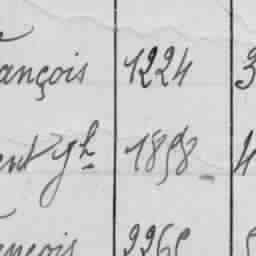 ançois 1224 3
ent Jh 1898 4
ançois 2265